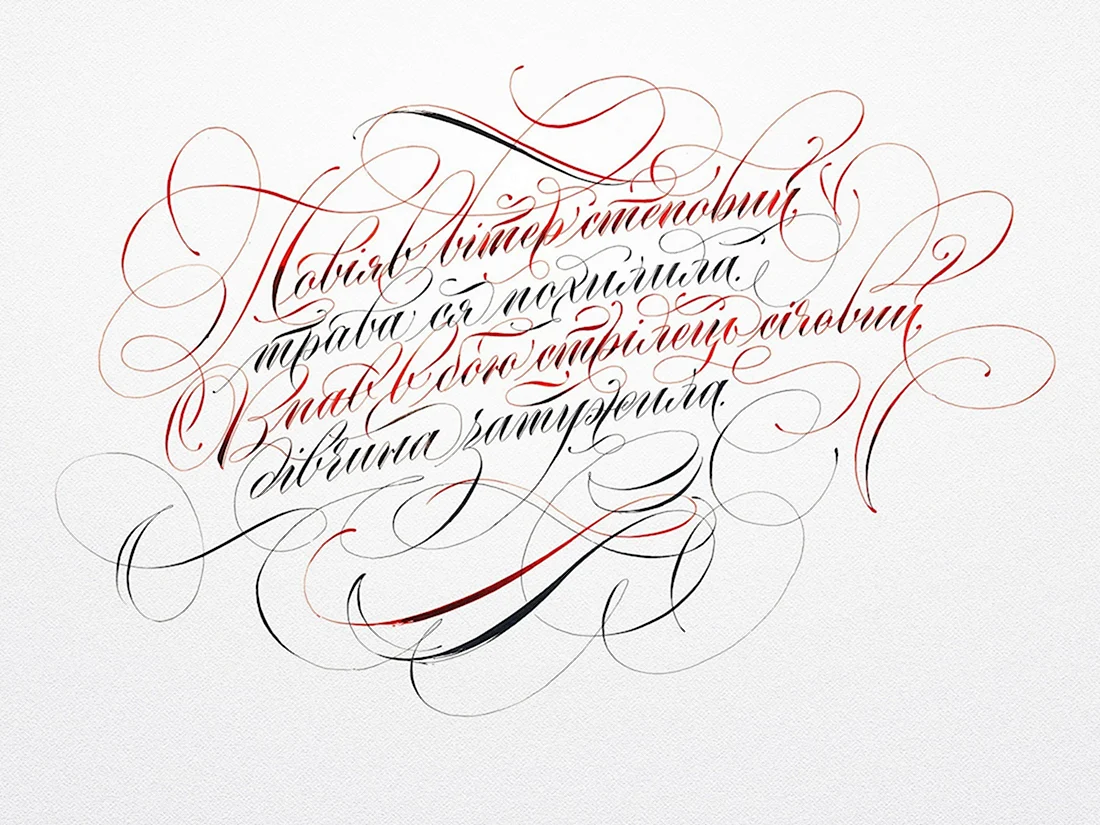 Повіяв вітер степовий,
трава ся похилила.
Впав в бою стрілець січовий,
дівчина затужила.